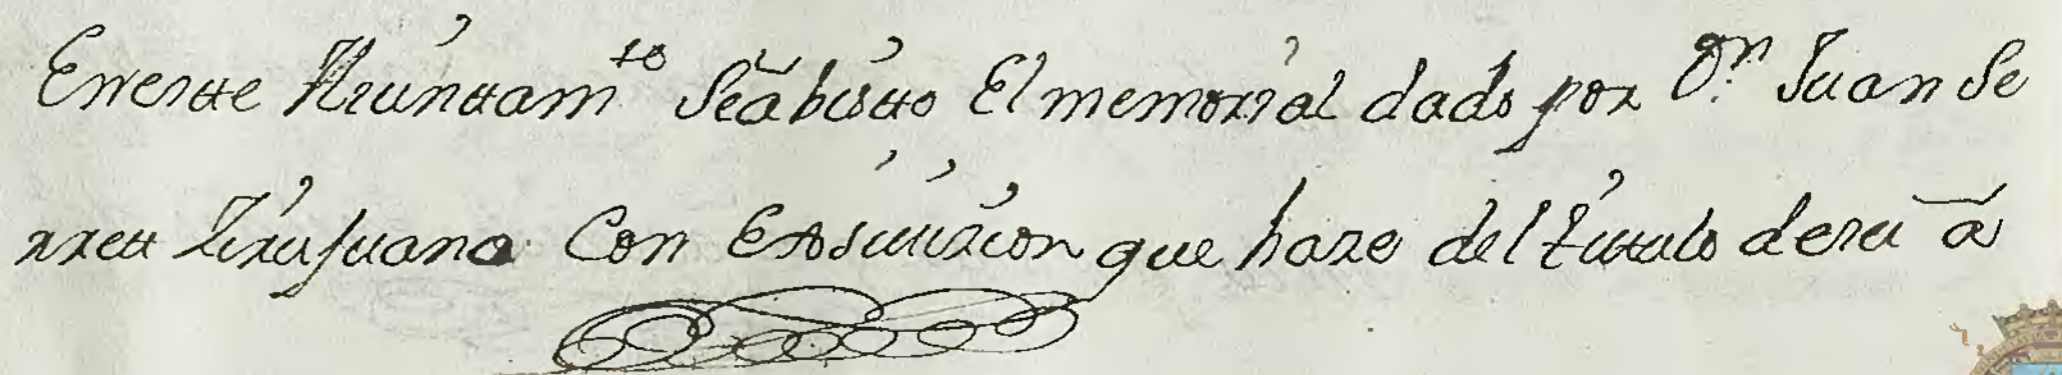 En este Aiuntam.to Se ā bisto El memorial dado por D.n Juan Se
rret Zirujuano Con Exsiuicion que haze del titulo de su ā